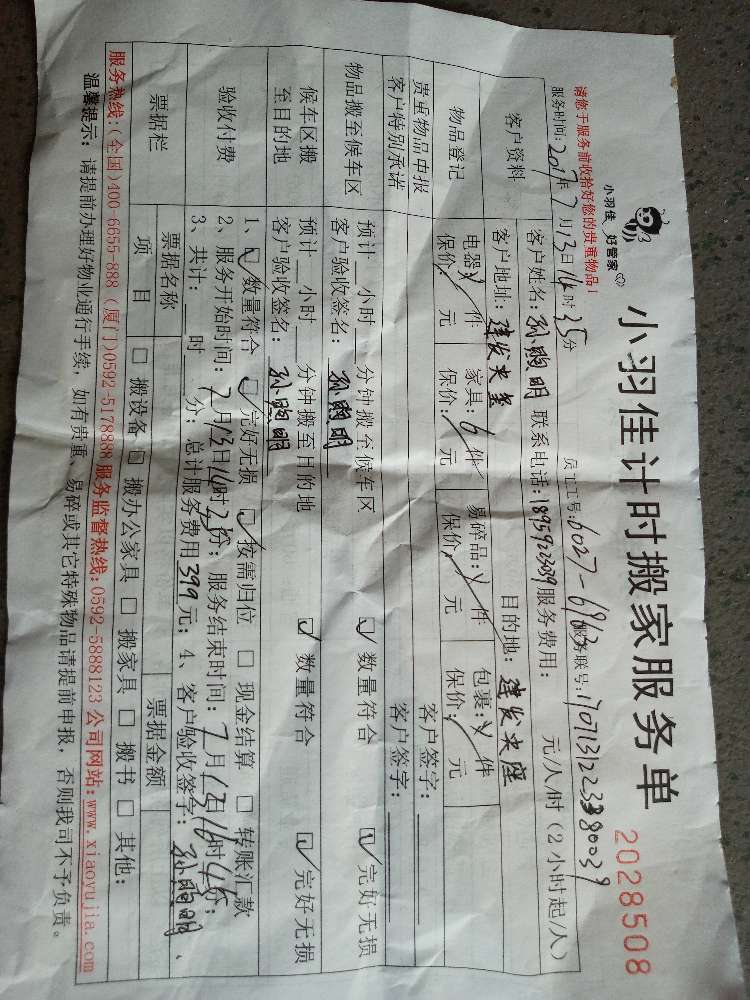 小羽佳 好管家
小羽佳计时搬家服务单
2028508
请您于服务前收拾好您的贵重物品!
服务时间: 2017年7月13日14时35分 员工工号: 6027-6963 服务联号:
客户资料
客户姓名: 孙煦明 联系电话: 服务费用: 元/人/时 (2小时起/人)
客户地址: 建发夹层 目的地: 建发夹座
物品登记
电器: 件 家具: 6件 易碎品: 件 包裹: 件
保价: 元 保价: 元 保价: 元 保价: 元
贵重物品申报 客户签字:
客户特别承诺 客户签字:
物品搬至候车区
预计__小时__分钟搬至候车区 ☑ 数量符合 ☑ 完好无损
客户验收签名: 孙煦明
候车区搬至目的地
预计__小时__分钟搬至目的地 ☑ 数量符合 ☑ 完好无损
客户验收签名: 孙煦明
验收付费
1、☑ 数量符合 ☑ 完好无损 ☑ 按需归位 □ 现金结算 □ 转账汇款
2、服务开始时间: 7月13日14时25分; 服务结束时间: 7月 日16时45分;
3、共计: __时__分; 总计服务费用399元; 4、客户验收签字: 孙煦明、
票据栏
票据名称 票据金额
项目 □ 搬设备 □ 搬办公家具 □ 搬家具 □ 搬书 □ 其他:
服务热线: (全国)400-6655-888 (厦门)0592-5178888 服务监督热线: 0592-5888123 公司网站: www.xiaoyujia.com
温馨提示: 请提前办理好物业通行手续, 如有贵重、易碎或其它特殊物品请提前申报, 否则我司不予负责。